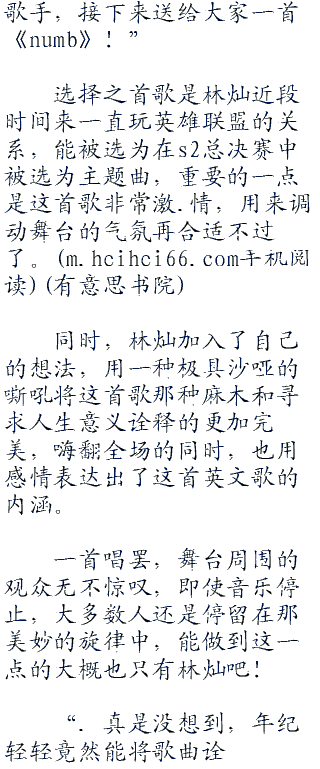 歌手，接下来送给大家一首
《numb》！”
选择之首歌是林灿近段
时间来一直玩英雄联盟的关
系，能被选为在s2总决赛中
被选为主题曲，重要的一点
是这首歌非常激.情，用来调
动舞台的气氛再合适不过
了。(m.hcihci66.com手机阅
读)(有意思书院)
同时，林灿加入了自己
的想法，用一种极具沙哑的
嘶吼将这首歌那种麻木和寻
求人生意义诠释的更加完
美，嗨翻全场的同时，也用
感情表达出了这首英文歌的
内涵。
一首唱罢，舞台周围的
观众无不惊叹，即使音乐停
止，大多数人还是停留在那
美妙的旋律中，能做到这一
点的大概也只有林灿吧！
“．真是没想到，年纪
轻轻竟然能将歌曲诠